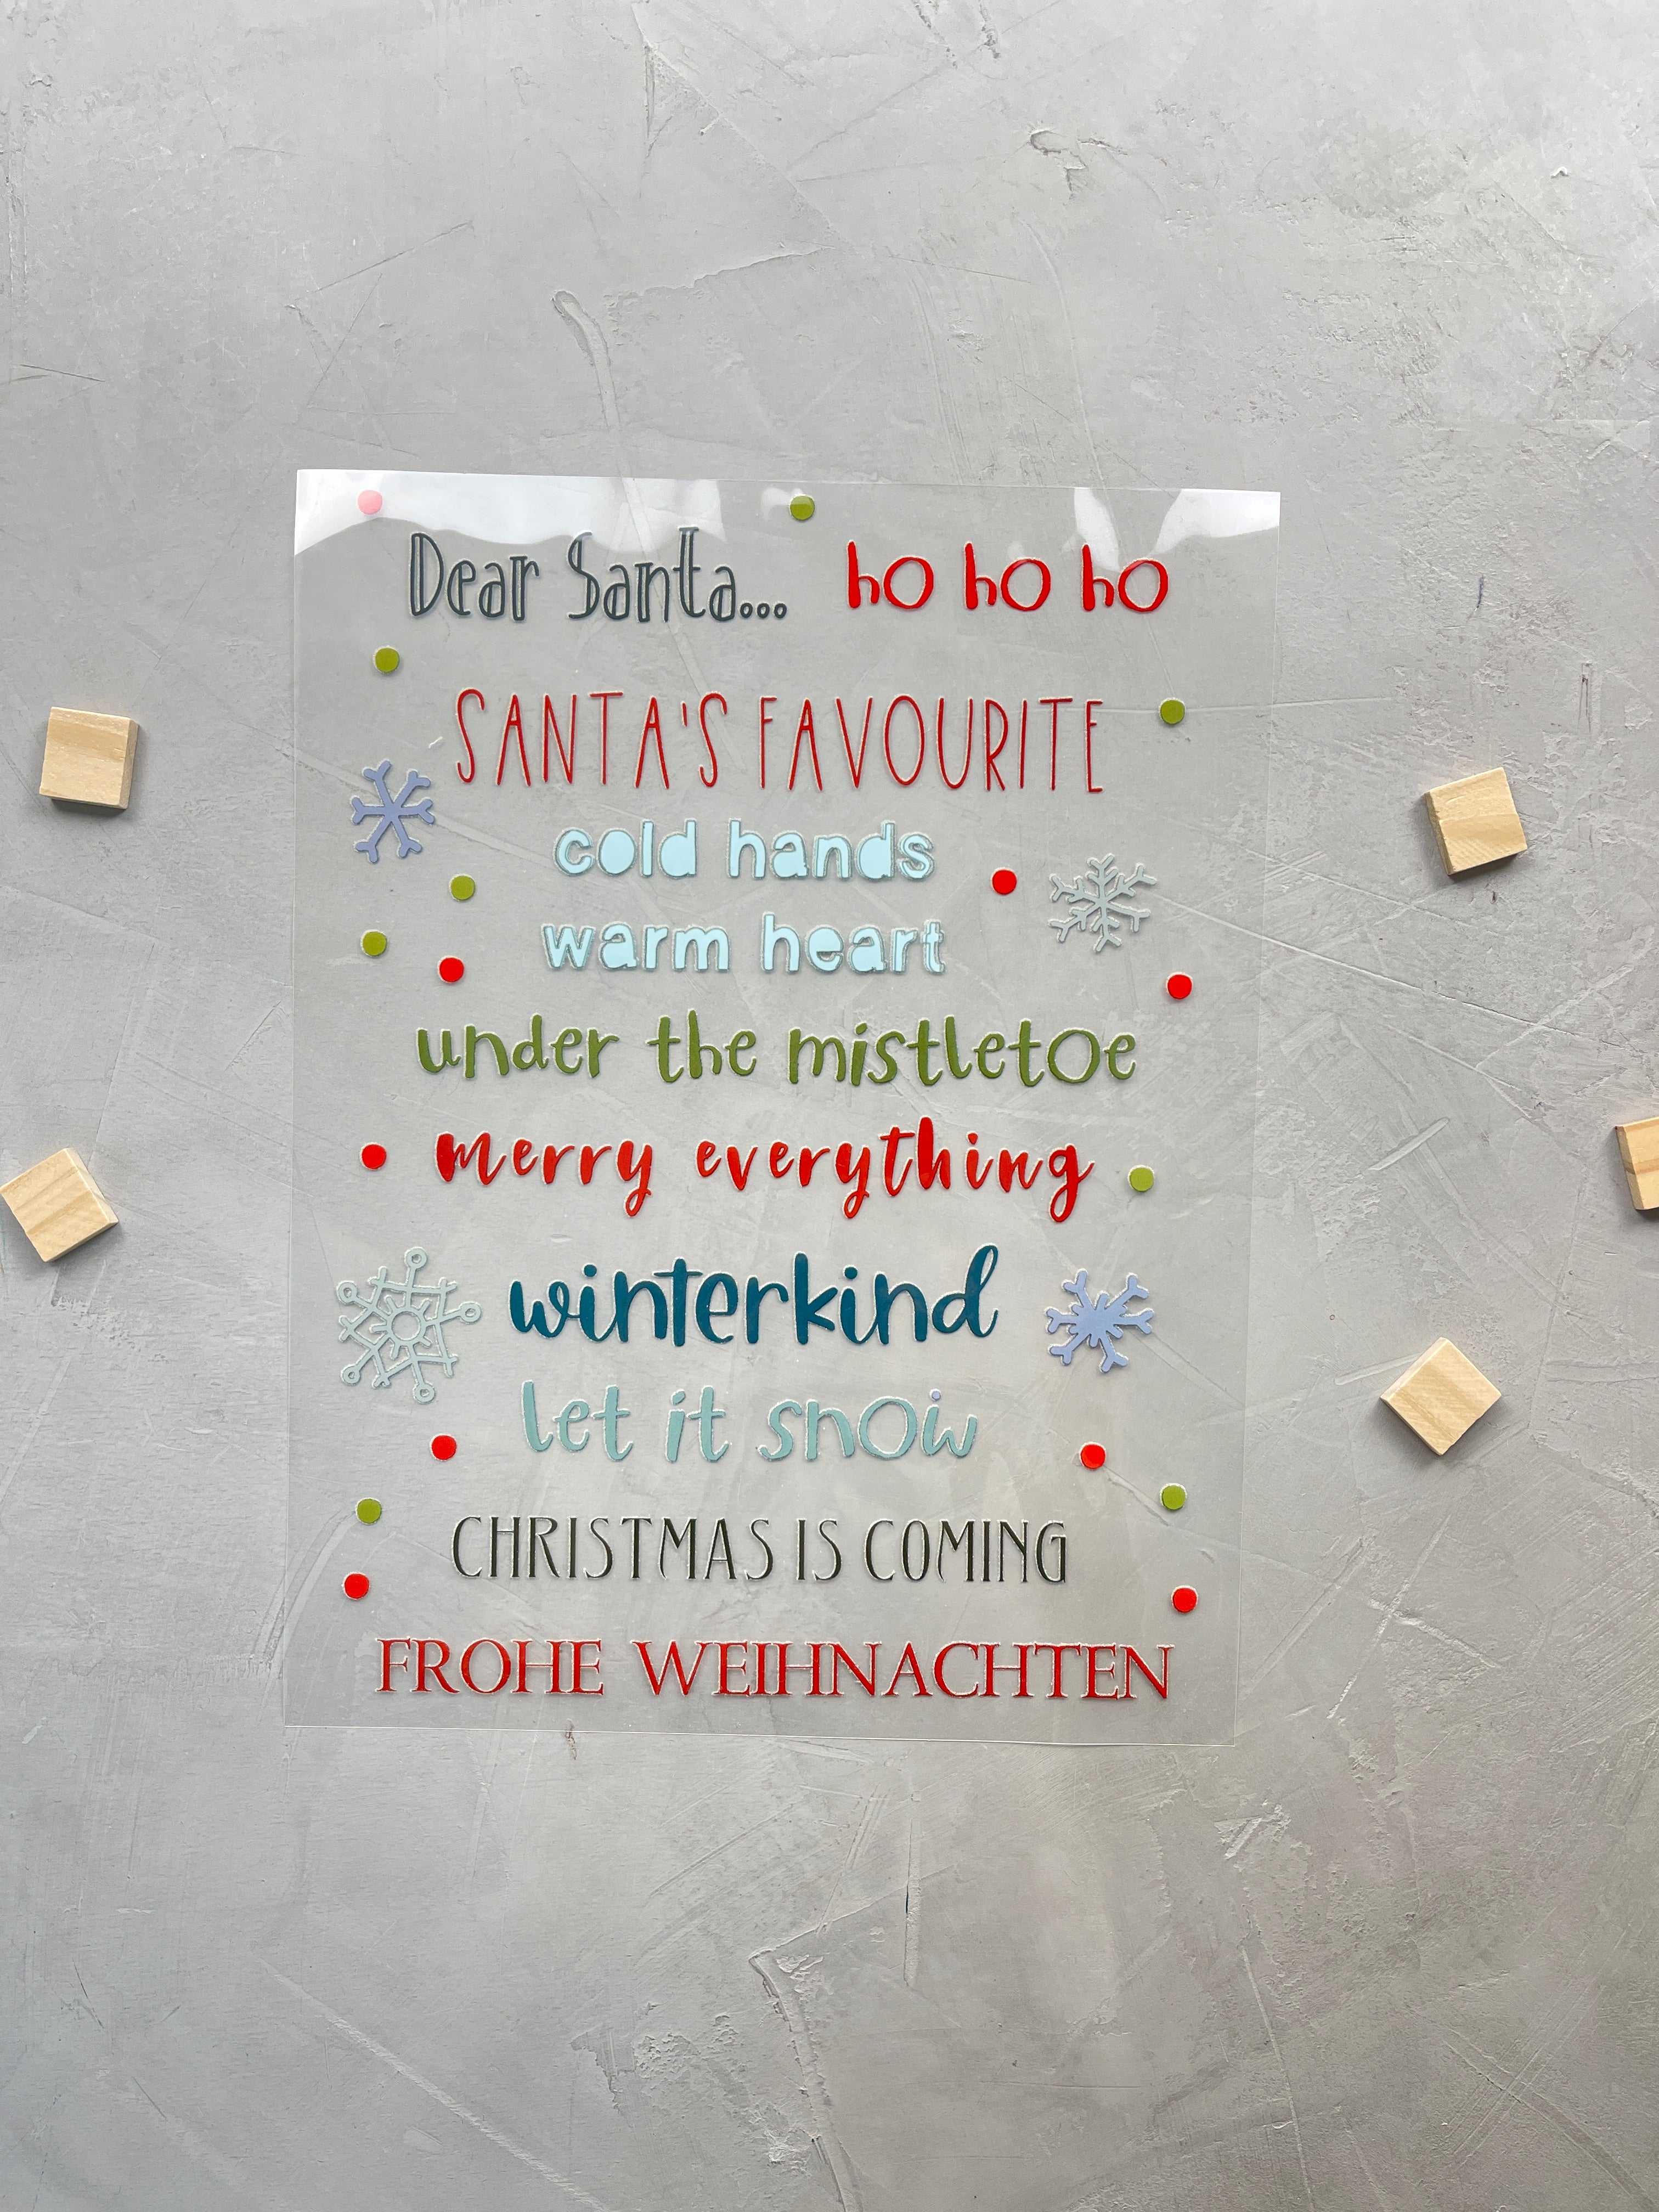 Dear Santa... ho ho ho
SANTA'S FAVOURITE
cold hands
warm heart
under the mistletoe
merry everything
winterkind
let it snow
CHRISTMAS IS COMING
FROHE WEIHNACHTEN